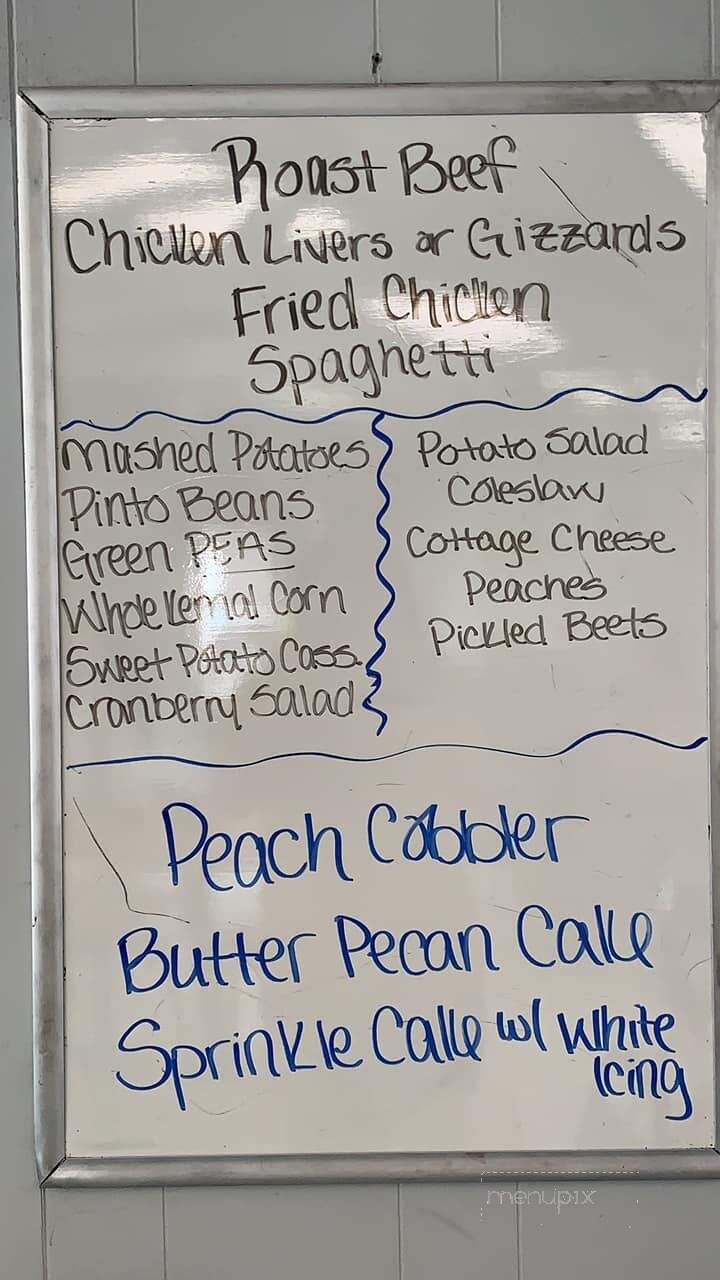 Roast Beef
Chicken Livers or Gizzards
Fried Chicken
Spaghetti
Mashed Potatoes
Pinto Beans
Green PEAS
Whole Kernal Corn
Sweet Potato Cass.
Cranberry Salad
Potato Salad
Coleslaw
Cottage Cheese
Peaches
Pickled Beets
Peach Cobbler
Butter Pecan Cake
Sprinkle Cake w/ White
Icing
menupix